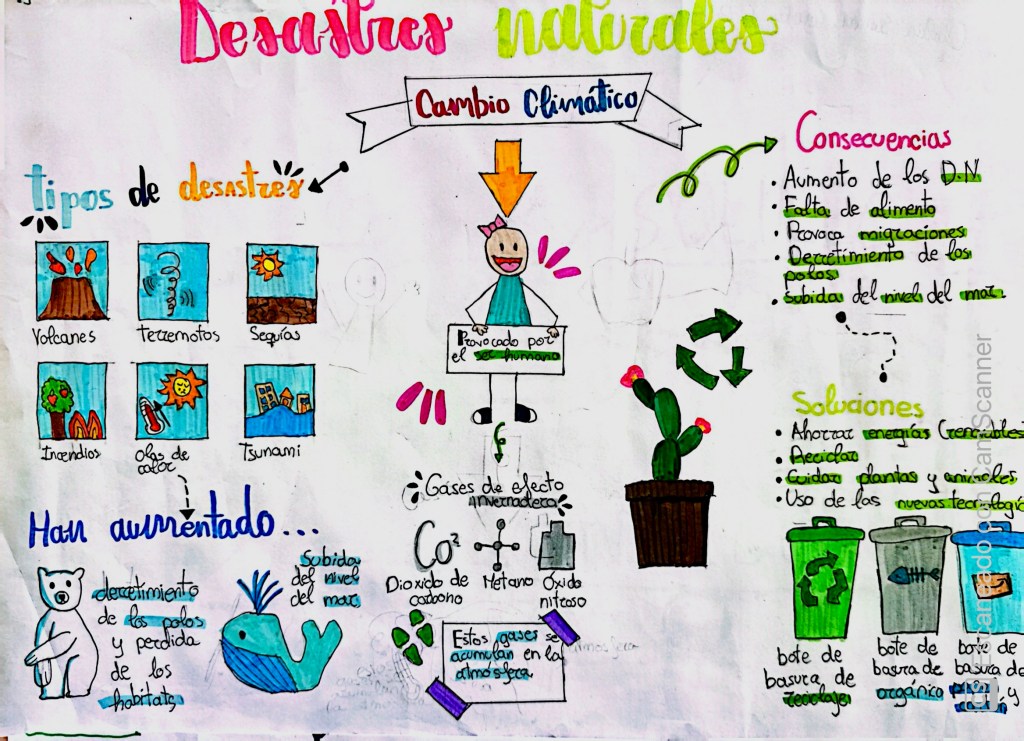 Desastres naturales
Cambio Climático
tipos de desastres
Volcanes
Terremotos
Sequías
Incendios
Olas de
calor
Tsunami
Han aumentado...
derretimiento
de los polos
y perdida
de los
habitats
Subida
del nivel
del mar
Provocado por
el ser humano
Gases de efecto
invernadero
Co²
Dioxido de
carbono
Metano
Óxido
nitroso
Estos gases se
acumulan en la
atmósfera
Consecuencias
• Aumento de los D.N
• Falta de alimento
• Provoca migraciones
• Derretimiento de los
polos
• Subida del nivel del mar
Soluciones
• Ahorrar energías (renovables
• Reciclar
• Cuidar plantas y animales
• Uso de las nuevas
bote de
basura de
reciclaje
bote de
basura de
orgánico
bote de
basura de
y
Escaneado con CamScanner